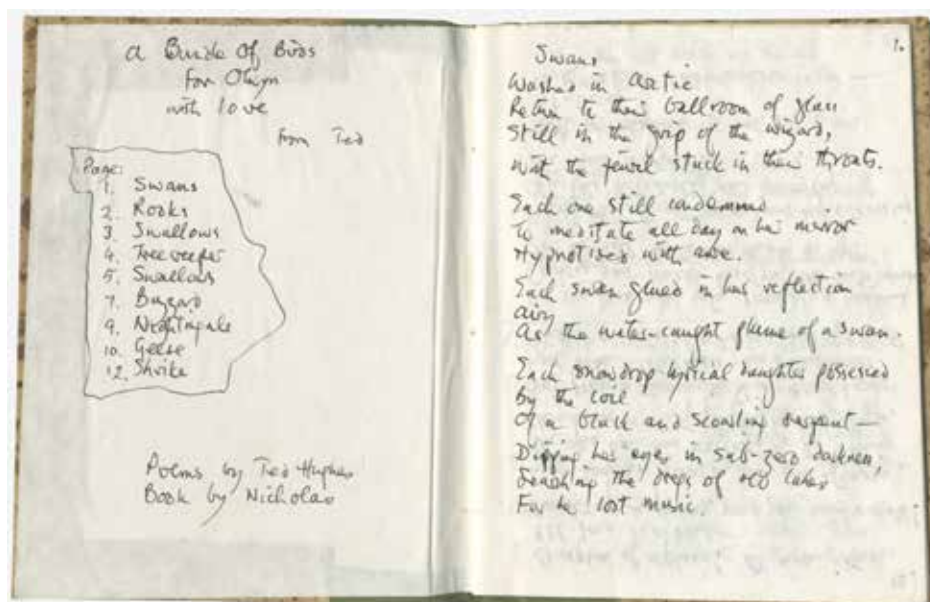 A Bundle Of Birds
For Olwyn
with love
from Ted
Page:
1. Swans
2. Rooks
3. Swallows
4. Treecreeper
5. Swallows
7. Buzzard
9. Nightingale
10. Geese
12. Shrike
Poems by Ted Hughes
Book by Nicholas
1.
Swans
Washed in Artic
Return to their ballroom of glass
Still in the grip of the wizard,
With the jewel stuck in their throats.
Each one still condemned
To meditate all day on her mirror
Hypnotised with awe.
Each swan glued in her reflection
airy
As the water-caught plume of a swan.
Each snowdrop lyrical daughter possessed
By the coil
Of a black and scowling serpent—
Dipping her eyes in sub-zero darkness,
Searching the dregs of old lakes
For her lost music.